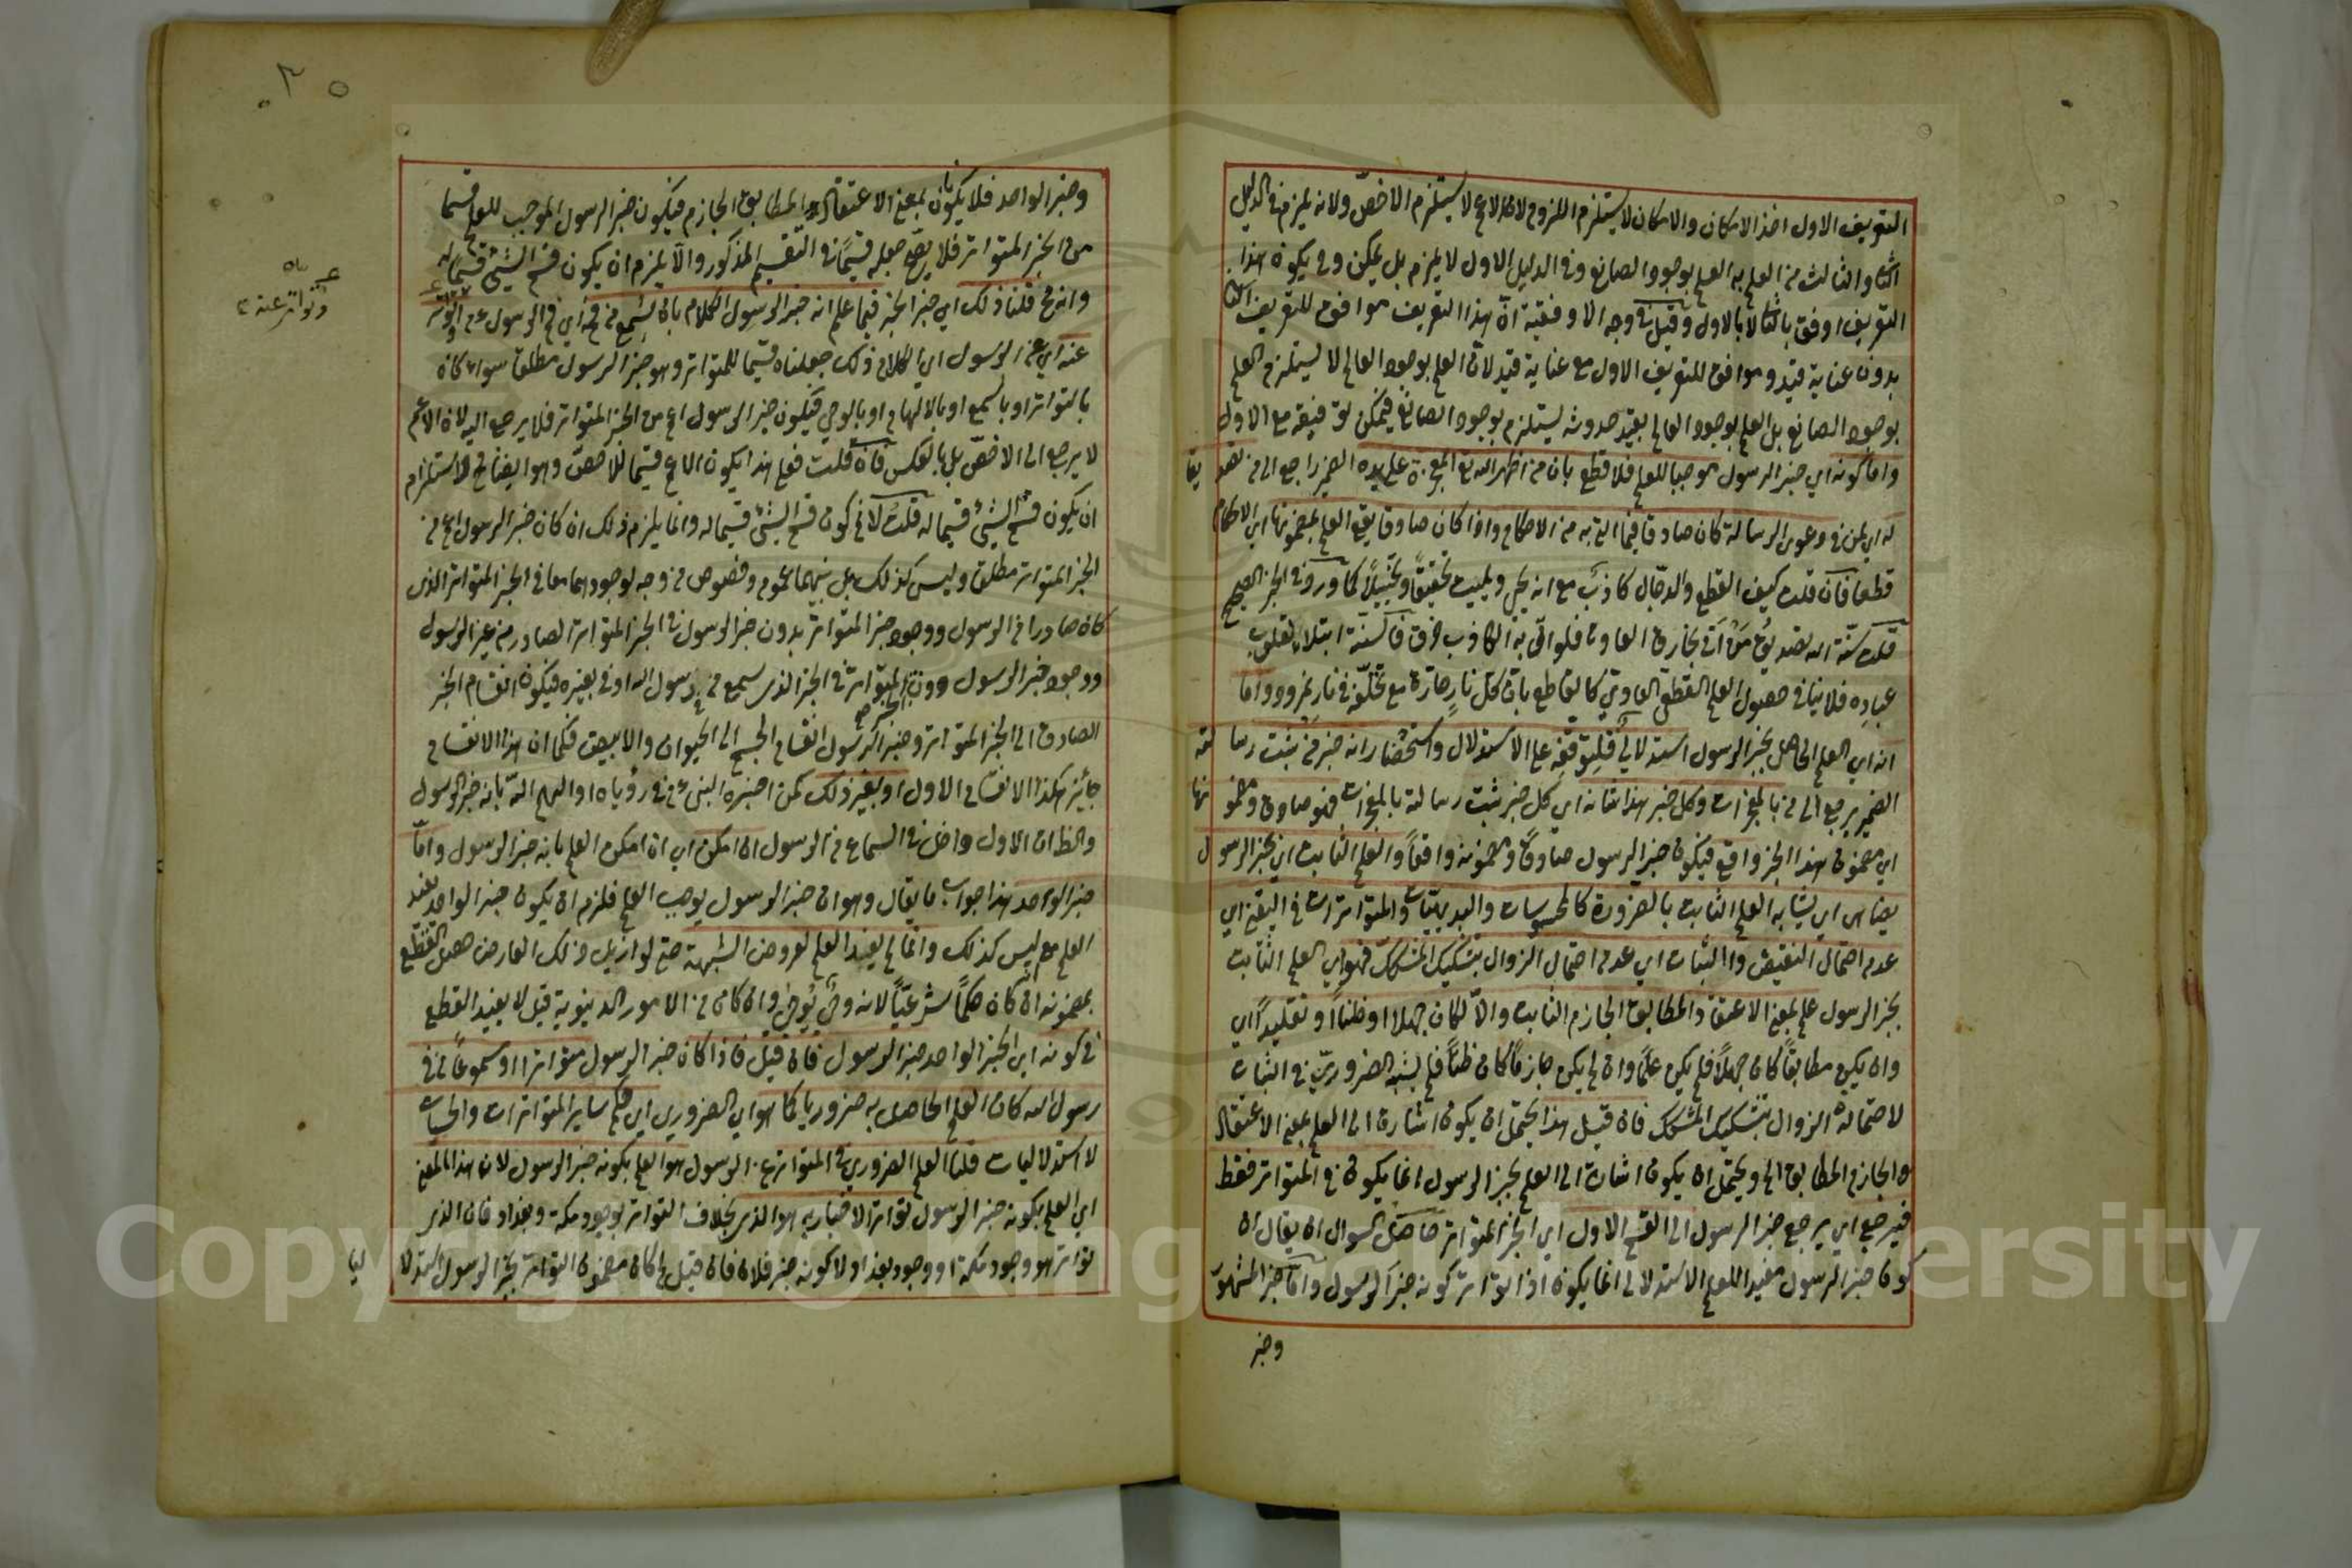 التعريف الاول اخذ الامكان والامكان لا يستلزم اللزوم لان الاعم لا يستلزم الاخص ولانه يلزم في الدليل
الثاني والثالث من العلم به العلم بوجود الصانع وفي الدليل الاول لا يلزم بل يمكن وفي يكون هذا
التعريف اوفق بالثاني لا بالاول وقيل في وجه الاوفقية ان هذا التعريف موافق للتعريف الثاني
بدون عناية قيد وموافق للتعريف الاول مع عناية قيد لان العلم بوجود العالم لا يستلزم العلم
بوجود الصانع بل العلم بوجود العالم بقيد حدوثه يستلزم بوجود الصانع فيمكن توفيقه مع الاول
واما كونه اي خبر الرسول موجبا للعلم فللقطع بان من اظهر الله تع المعجزة على يده الضمير راجع الى من تصديقا
له اي لمن في دعوى الرسالة كان صادقا فيما اتى به من الاحكام واذا كان صادقا يقع العلم بمضمونها اي الاحكام
قطعا فان قلت كيف القطع والدجال كاذب مع انه يحيي ويميت تحقيقا وتخييلا كما ورد في الخبر الصحيح
قلت سنة الله تصديق من اتى بخارق العادة فلو اتى به الكاذب خرق فالسنة ابتلاء لقلوب
عباده فلا ينافي حصول العلم القطعي العادي كالقاطع بان كل نار حارة مع تخلفه في نار نمرود واما
انه اي العلم الحاصل بخبر الرسول استدلالي فلتوقفه على الاستدلال واستحضار انه خبر من ثبت رسالته
الضمير يرجع الى من بالمعجزات وكل خبر هذا شانه اي كل خبر ثبت رسالته بالمعجزات فهو صادق ومضمونها
اي مضمون هذا الخبر واقع فيكون خبر الرسول صادقا ومضمونه واقعا والعلم الثابت اي بخبر الرسول
يضاهي اي يشابه العلم الثابت بالضرورة كالمحسوسات والبديهيات والمتواترات في التيقن اي
عدم احتمال النقيض والثبات اي عدم احتمال الزوال بتشكيك المشكك فهو اي العلم الثابت
بخبر الرسول علم بمعنى الاعتقاد المطابق الجازم الثابت والا لكان جهلا او ظنا او تقليدا اي
وان يكن مطابقا كان جهلا فلم يكن علما وان لم يكن جازما كان ظنا فلم يشبه الضروري في الثبات
لاحتماله الزوال بتشكيك المشكك فان قيل هذا يحتمل ان يكون اشارة الى العلم بمعنى الاعتقاد
والجازم المطابق الخ ويحتمل ان يكون اشارة الى العلم بخبر الرسول انما يكون في المتواتر فقط
فيرجع اي يرجع خبر الرسول الى القسم الاول اي الخبر المتواتر حاصل السوال ان يقال ان
كون خبر الرسول مفيدا للعلم الاستدلالي انما يكون اذا تواتر كونه خبر الرسول واما خبر المشهور
وخبر
وخبر الواحد فلا يكون بمعنى الاعتقاد المطابق الجازم فيكون خبر الرسول الموجب للعلم قسما
من الخبر المتواتر فلا يصح جعله قسيما في التقسيم المذكور والا يلزم ان يكون قسم الشئ قسيما له
عنه اي عن الرسول اي الكلام وذلك جعلناه قسيما للمتواتر وهو خبر الرسول مطلقا سواء كان
بالتواتر او بالسمع او بالالهام او بالوحي فيكون خبر الرسول اعم من الخبر المتواتر فلا يرجع اليه لان الاعم
لا يرجع الى الاخص بل بالعكس فان قلت فعلى هذا يكون الاعم قسيما للاخص وهو ايضا لاستلزام
ان يكون قسم الشئ قسيما له قلت لا نم كون قسم الشئ قسيما له وانما يلزم ذلك ان كان خبر الرسول اعم من
الخبر المتواتر مطلقا وليس كذلك بل بينهما عموم وخصوص من وجه لوجودهما معا في الخبر المتواتر الذي
كان صادرا من الرسول ووجود خبر المتواتر بدون خبر الرسول في الخبر المتواتر الصادر من غير الرسول
ووجود خبر الرسول دون المتواتر في الخبر الذي سمع من في رسول الله او في بغيره فيكون انقسام الخبر
الصادق الى الخبر المتواتر وخبر الرسول انقسام الجسم الى الحيوان والابيض فكما ان هذا الانقسام
جائز هكذا الانقسام الاول او بغير ذلك كمن اخبره النبي ع م في رؤياه او الهم الله بانه خبر الرسول
والظ ان الاول داخل في السماع من الرسول ان امكن اي ان امكن العلم بانه خبر الرسول واما
خبر الواحد هذا جواب ما يقال وهو ان خبر الرسول يوجب العلم فلزم ان يكون خبر الواحد يفيد
العلم مع ليس كذلك وانما لم يفيد العلم لعروض الشبهة حتى لو ازيل ذلك العارض حصل القطع
بمضمونه ان كان حكما شرعيا لانه وحي يوحى وان كان من الامور الدنيوية قيل لا يفيد القطع
في كونه اي الخبر الواحد خبر الرسول فان قيل فاذا كان خبر الرسول متواترا او مسموعا من في
رسول الله كان العلم الحاصل به ضروريا كما هو اي الضروري اي حكم سائر المتواترات والحسيات
لا استدلاليات قلنا العلم الضروري في المتواتر عن الرسول هو العلم بكونه خبر الرسول لان هذا المعنى
اي العلم بكونه خبر الرسول تواتر الاخبار به هو الذي بخلاف التواتر بوجود مكة وبغداد فان الذي
تواتر هو وجود مكة او وجود بغداد لا كونه خبر فلان فان قيل لم كان مضمون التواتر بخبر الرسول استدلاليا